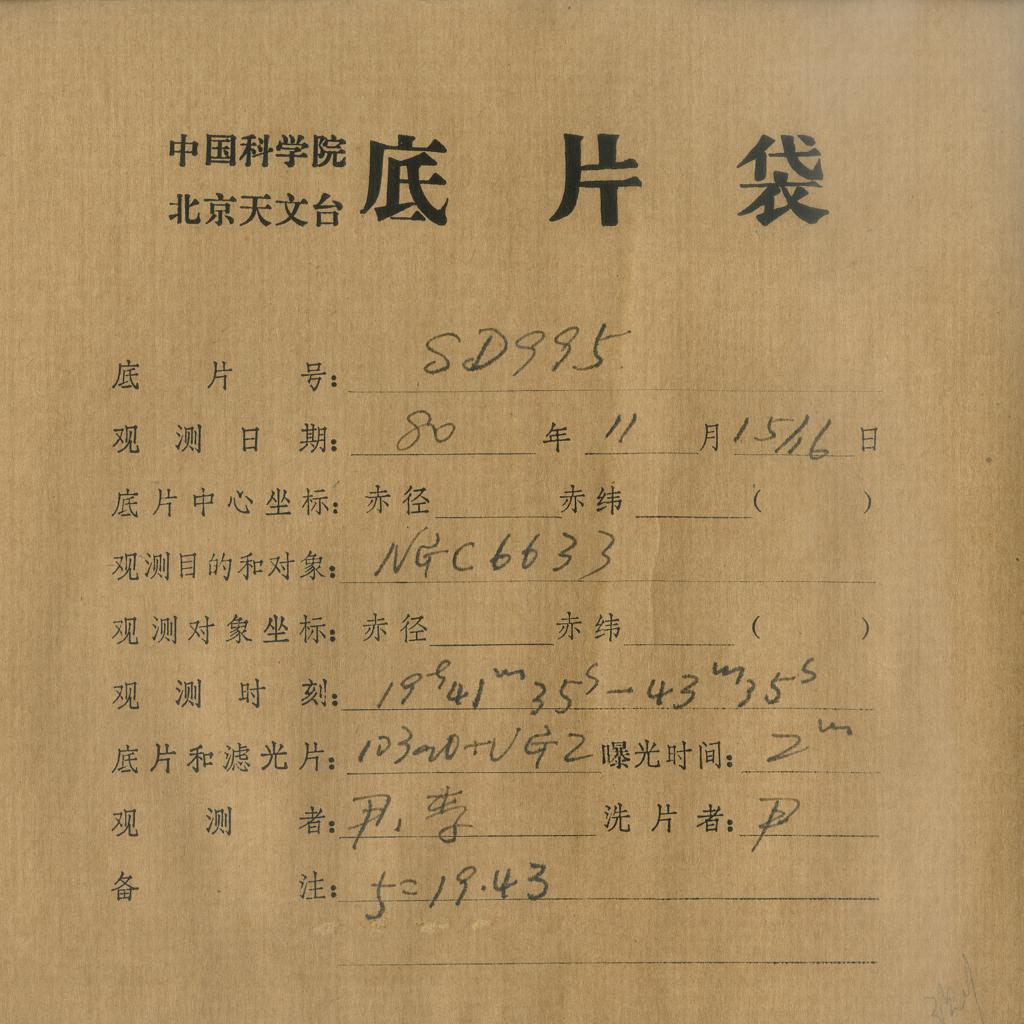 中国科学院
北京天文台
底片袋
底片号: SD995
观测日期: 80 年 11 月 15/16 日
底片中心坐标: 赤径 赤纬 ( )
观测目的和对象: NGC6633
观测对象坐标: 赤径 赤纬 ( )
观测时刻: 19 41ᵐ 35ˢ — 43ᵐ 35ˢ
底片和滤光片: 103aO+UG2 曝光时间: 2ᵐ
观测者: 尹、李 洗片者: 尹
备注: =19.43